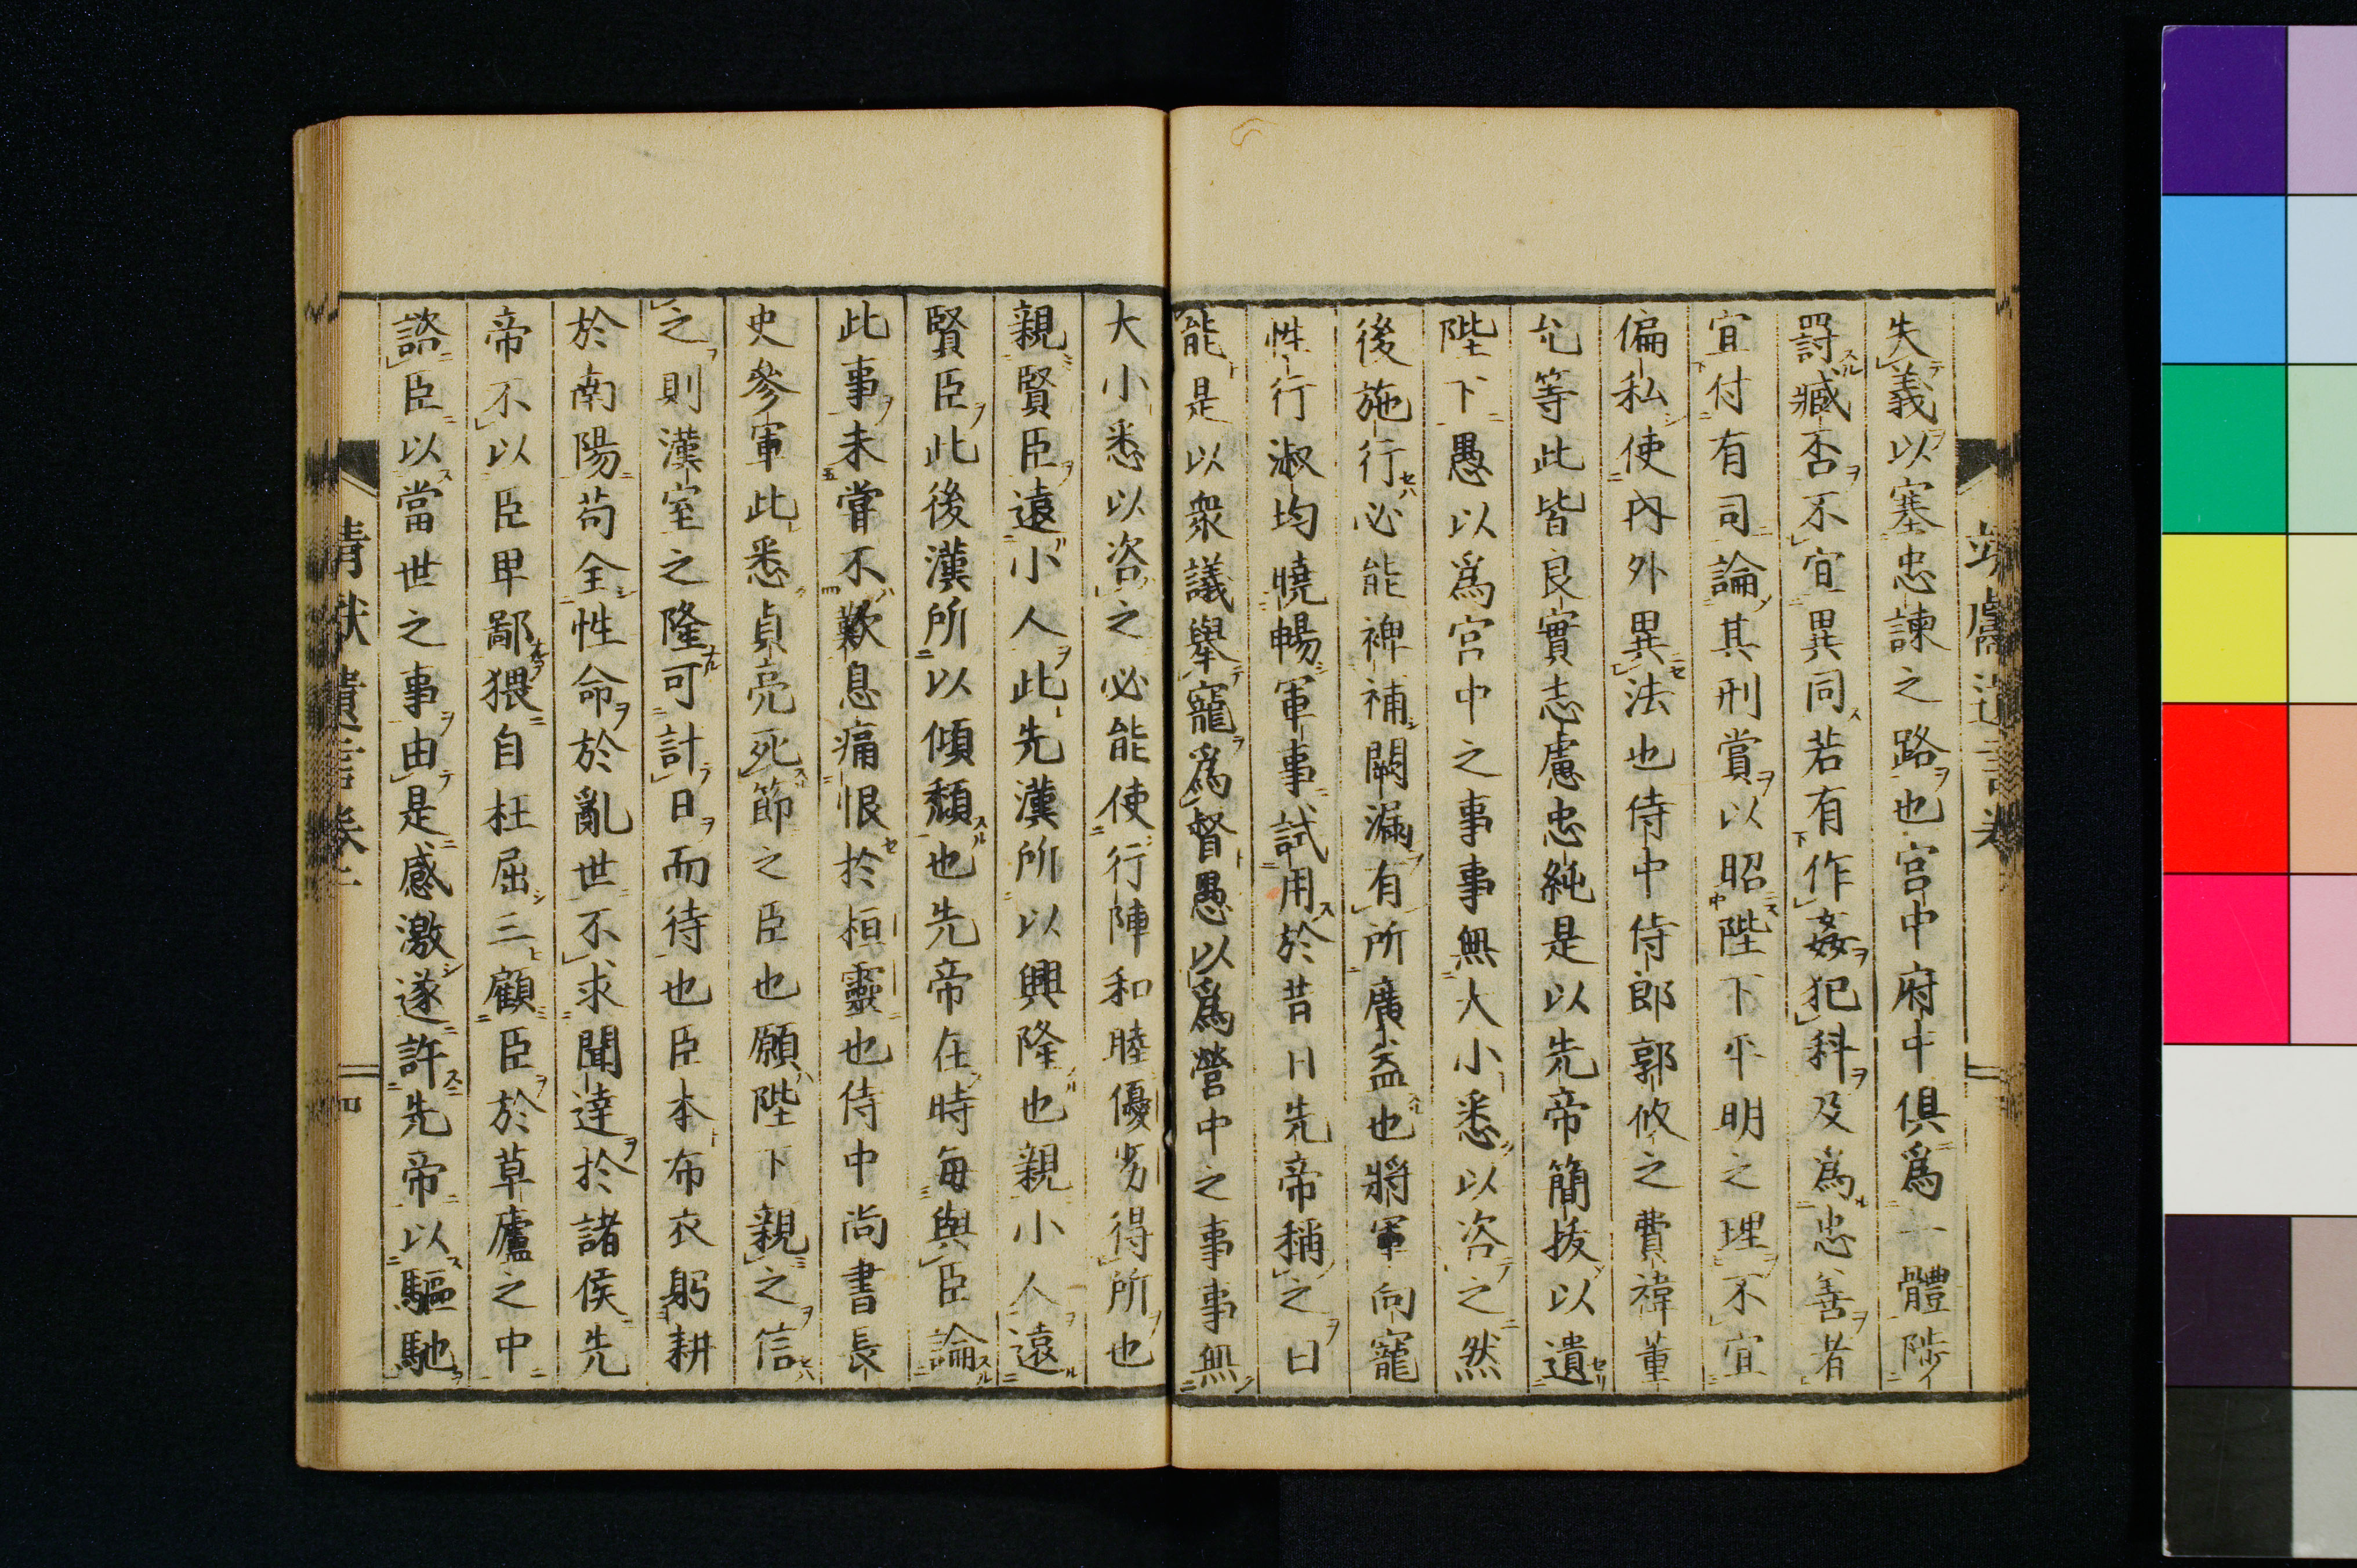 失義以塞忠諫之路也宮中府中俱爲一體陟
罸臧否不宜異同若有作姦犯科及爲忠善者
宜付有司論其刑賞以昭陛下平明之理不宜
偏私使內外異法也侍中侍郎郭攸之費禕董
允等此皆良實志慮忠純是以先帝簡拔以遺
陛下愚以爲宮中之事事無大小悉以咨之然
後施行必能裨補闕漏有所廣益也將軍向寵
性行淑均曉暢軍事試用於昔日先帝稱之曰
能是以衆議舉寵爲督愚以爲營中之事事無
大小悉以咨之必能使行陣和睦優劣得所也
親賢臣遠小人此先漢所以興隆也親小人遠
賢臣此後漢所以傾頽也先帝在時每與臣論
此事未嘗不歎息痛恨於桓靈也侍中尚書長
史參軍此悉貞亮死節之臣也願陛下親之信
之則漢室之隆可計日而待也臣本布衣躬耕
於南陽苟全性命於亂世不求聞達於諸侯先
帝不以臣卑鄙猥自枉屈三顧臣於草廬之中
諮臣以當世之事由是感激遂許先帝以驅馳